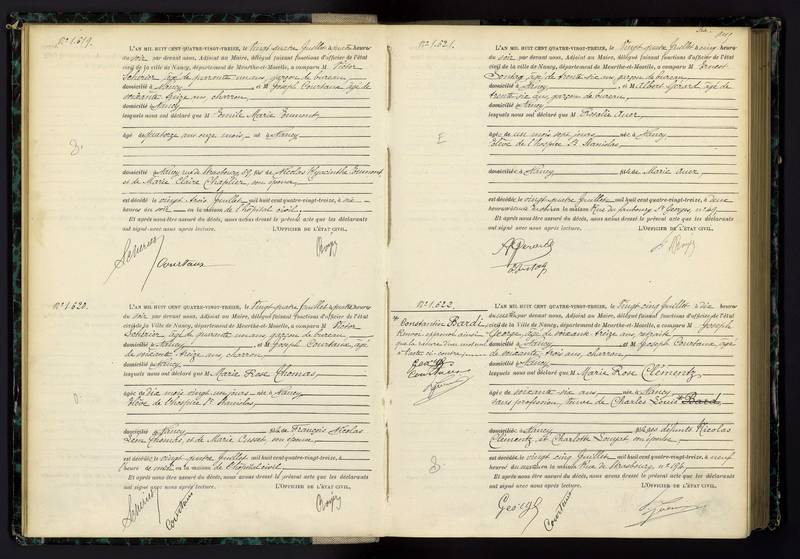 N° 1.519.
L'AN MIL HUIT CENT QUATRE-VINGT-TREIZE, le Vingt-quatre Juillet à quatre heures
du soir, par devant nous, Adjoint au Maire, délégué faisant fonctions d'officier de l'état
civil de la ville de Nancy, département de Meurthe-et-Moselle, a comparu M Victor
Scherier, âgé de quarante un ans, garçon de bureau,
domicilié à Nancy, et M Joseph Courtaux, âgé de
soixante treize ans, charron,
domicilié à Nancy
lesquels nous ont déclaré que Emile Marie
âgé de quatorze ans onze mois, né à Nancy
domicilié à Nancy, rue de Strasbourg, 89, fils de Nicolas Hyacinthe
et de Marie Claire Chaplier, son épouse,
est décédé le vingt trois Juillet, mil huit cent quatre-vingt-treize, à six
heures du soir, en la maison de l'hôpital civil.
Et après nous être assuré du décès, nous avons dressé le présent acte que les déclarants
ont signé avec nous après lecture. L'OFFICIER DE L'ÉTAT CIVIL,
Scherier
Courtaux
N° 1.520.
L'AN MIL HUIT CENT QUATRE-VINGT-TREIZE, le Vingt-quatre Juillet à quatre heures
du soir, par devant nous, Adjoint au Maire, délégué faisant fonctions d'officier de l'état
civil de la ville de Nancy, département de Meurthe-et-Moselle, a comparu M Victor
Scherier, âgé de quarante un ans, garçon de bureau,
domicilié à Nancy, et M Joseph Courtaux, âgé
de soixante treize ans, charron,
domicilié à Nancy
lesquels nous ont déclaré que Marie Rose Thomas,
âgée de dix mois vingt un jours née à Nancy
Elève de l'hospice St Stanislas,
domiciliée à Nancy, fille de François Nicolas
Léon Thomas, et de Marie son épouse
est décédée le vingt-quatre Juillet, mil huit cent quatre-vingt-treize, à
heures du en la maison de l'hôpital civil,
Et après nous être assuré du décès, nous avons dressé le présent acte que les déclarants
ont signé avec nous après lecture. L'OFFICIER DE L'ÉTAT CIVIL,
Scherier
Courtaux
N° 1.521.
L'AN MIL HUIT CENT QUATRE-VINGT-TREIZE, le Vingt-quatre Juillet à cinq heures
du soir, par devant nous, Adjoint au Maire, délégué faisant fonctions d'officier de l'état
civil de la ville de Nancy, département de Meurthe-et-Moselle, a comparu M Ernest
âgé de trente six ans, garçon de bureau,
domicilié à Nancy, et M Albert Gérard, âgé de
trente six ans, garçon de bureau,
domicilié à Nancy
lesquels nous ont déclaré que Rosalie Auer,
âgée de un mois jours née à Nancy
Elève de l'hospice St Stanislas,
domiciliée à Nancy, fille de Marie Auer,
est décédée le vingt-quatre Juillet, mil huit cent quatre-vingt-treize, à deux
heures du matin en la maison Rue du faubourg St Georges, n° 49
Et après nous être assuré du décès, nous avons dressé le présent acte que les déclarants
ont signé avec nous après lecture. L'OFFICIER DE L'ÉTAT CIVIL,
A Gérard
N° 1.522.
* Constantin Bardi,
Renvoi approuvé ainsi
que la rature d'un mot nul
à l'acte ci-contre
George
Courtaux
L'AN MIL HUIT CENT QUATRE-VINGT-TREIZE, le Vingt cinq Juillet à dix heures
du matin, par devant nous, Adjoint au Maire, délégué faisant fonctions d'officier de l'état
civil de la ville de Nancy, département de Meurthe-et-Moselle, a comparu M Joseph
George, âgé de soixante treize ans, retraité
domicilié à Nancy, et M Joseph Courtaux, âgé
de soixante trois ans, charron,
domicilié à Nancy
lesquels nous ont déclaré que Marie Rose Clémentz,
âgée de soixante six ans née à Nancy
sans profession, veuve de Charles Louis * Bard,
domiciliée à Nancy, fille des défunts Nicolas
Clémentz, et Charlotte son épouse,
est décédée le vingt cinq Juillet, mil huit cent quatre-vingt-treize, à neuf
heures du matin en la maison Rue de Strasbourg, n° 194,
Et après nous être assuré du décès, nous avons dressé le présent acte que les déclarants
ont signé avec nous après lecture. L'OFFICIER DE L'ÉTAT CIVIL,
George
Courtaux